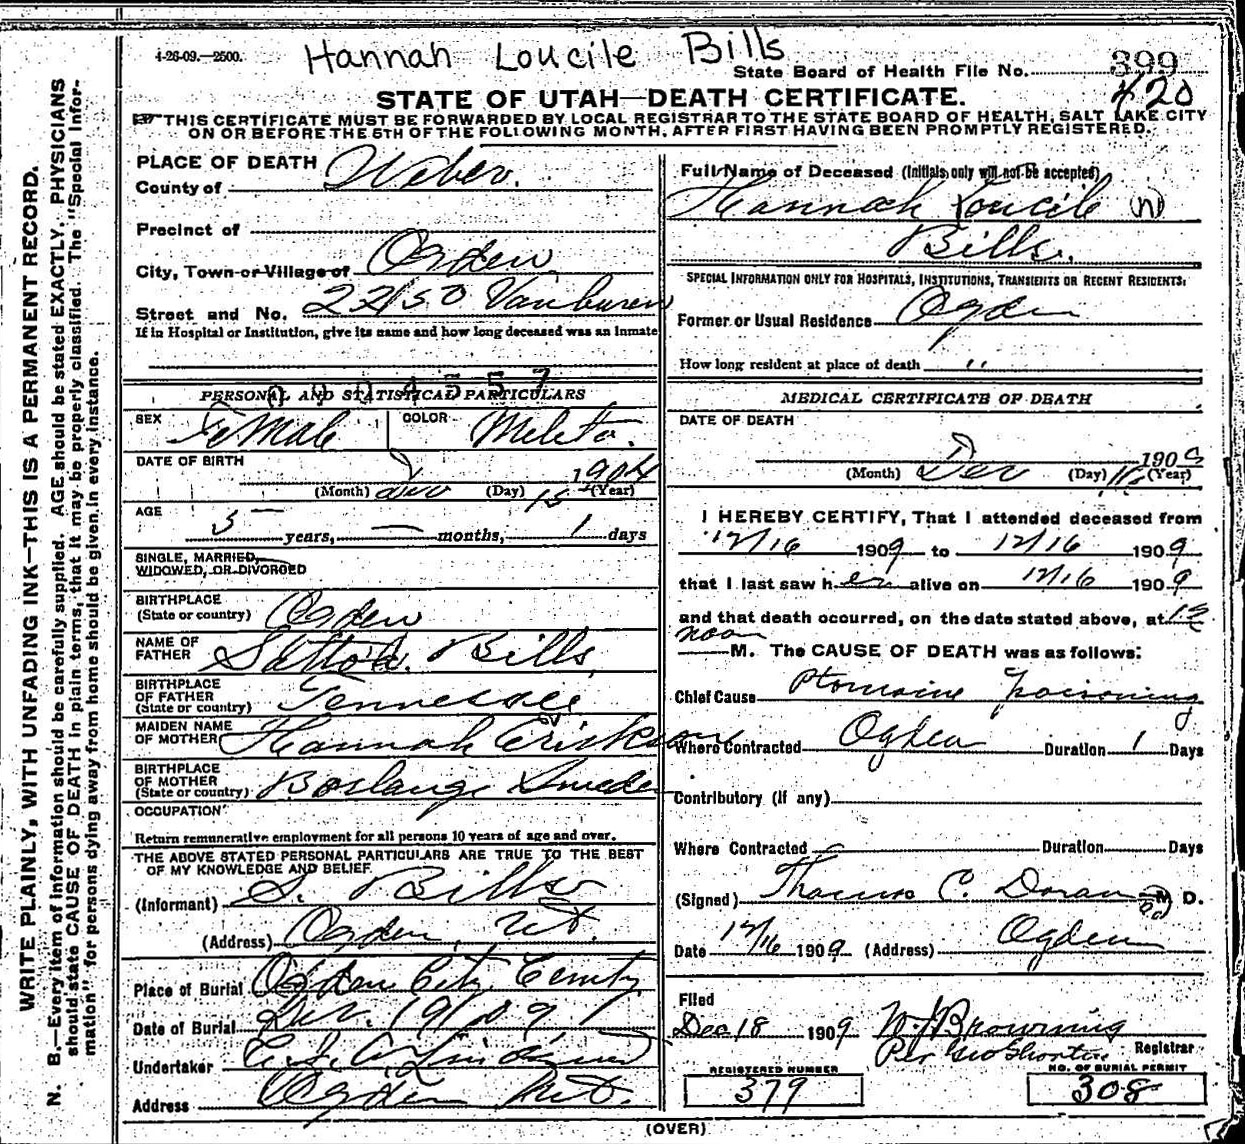 4-26-09.—2500.
Hannah Loucile Bills
State Board of Health File No. 399
420
STATE OF UTAH—DEATH CERTIFICATE.
THIS CERTIFICATE MUST BE FORWARDED BY LOCAL REGISTRAR TO THE STATE BOARD OF HEALTH, SALT LAKE CITY
ON OR BEFORE THE 5TH OF THE FOLLOWING MONTH, AFTER FIRST HAVING BEEN PROMPTLY REGISTERED.
WRITE PLAINLY, WITH UNFADING INK—THIS IS A PERMANENT RECORD.
N. B.—Every item of information should be carefully supplied. AGE should be stated EXACTLY. PHYSICIANS
should state CAUSE OF DEATH in plain terms, that it may be properly classified. The "Special Infor-
mation" for persons dying away from home should be given in every instance.
PLACE OF DEATH
County of Weber.
Precinct of
City, Town or Village of Ogden
Street and No. Vanburen
If in Hospital or Institution, give its name and how long deceased was an inmate
PERSONAL AND STATISTICAL PARTICULARS
SEX Female COLOR
DATE OF BIRTH
1904
(Month) Dec (Day) 15 (Year)
AGE
5 years, — months, 1 days
SINGLE, MARRIED,
WIDOWED, OR DIVORCED
BIRTHPLACE
(State or country) Ogden
NAME OF
FATHER Bills,
BIRTHPLACE
OF FATHER
(State or country) Tennessee
MAIDEN NAME
OF MOTHER Hannah Erickson
BIRTHPLACE
OF MOTHER
(State or country) Sweden
OCCUPATION
Return remunerative employment for all persons 10 years of age and over.
THE ABOVE STATED PERSONAL PARTICULARS ARE TRUE TO THE BEST
OF MY KNOWLEDGE AND BELIEF
(Informant) S. Bills
(Address) Ogden, Ut.
Place of Burial Ogden City
Date of Burial Dec. 19/09
Undertaker
Address Ogden Ut.
Full Name of Deceased (Initials only will not be accepted)
Hannah Loucile (n)
Bills.
SPECIAL INFORMATION ONLY FOR HOSPITALS, INSTITUTIONS, TRANSIENTS OR RECENT RESIDENTS:
Former or Usual Residence Ogden
How long resident at place of death "
MEDICAL CERTIFICATE OF DEATH
DATE OF DEATH
1909
(Month) Dec (Day) 16 (Year)
I HEREBY CERTIFY, That I attended deceased from
12/16 1909 to 12/16 1909
that I last saw her alive on 12/16 1909
and that death occurred, on the date stated above, at 12
noon
M. The CAUSE OF DEATH was as follows:
Chief Cause Ptomaine Poisoning
Where Contracted Ogden Duration 1 Days
Contributory (if any)
Where Contracted Duration Days
(Signed) Thomas C. Doran M. D.
Date 12/16 1909 (Address) Ogden
Filed
Dec 18 1909 W J Browning
Per Geo Shorten Registrar
REGISTERED NUMBER
379
NO. OF BURIAL PERMIT
308
(OVER)